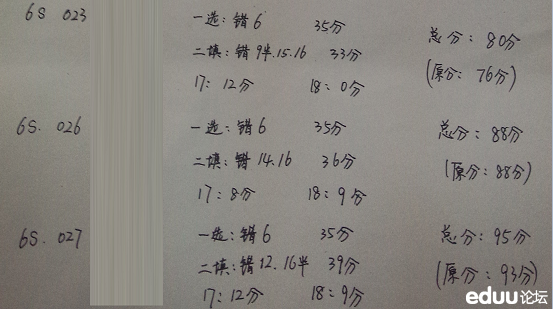 6S 023 一选: 错6 35分 总分: 80分
二填: 错9半.15.16 33分 (原分: 76分)
17: 12分 18: 0分
6S. 026 一选: 错6 35分 总分: 88分
二填: 错14.16 36分 (原分: 88分)
17: 8分 18: 9分
6S. 027 一选: 错6 35分 总分: 95分
二填: 错12.16半 39分 (原分: 93分)
17: 12分 18: 9分
eduu论坛